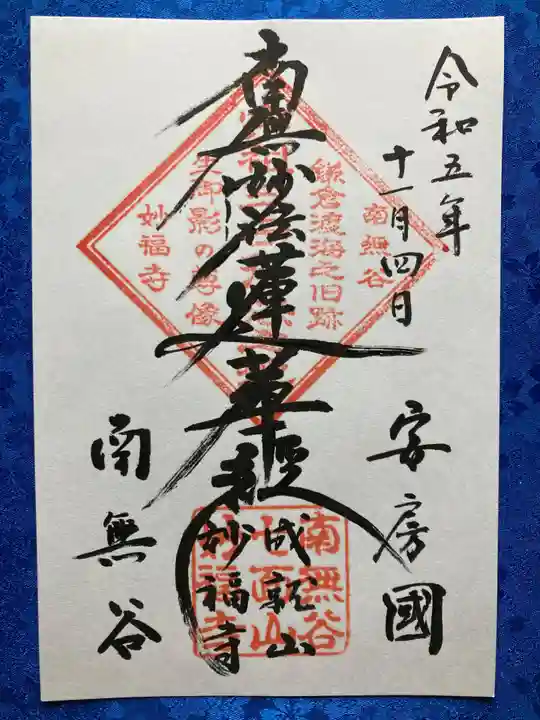 令和五年
十一月四日
安房國
南無妙法蓮華經
成就山
妙福寺
南無谷
南無谷
鎌倉渡海之旧跡
生御影の尊像
妙福寺
南無谷
妙福寺